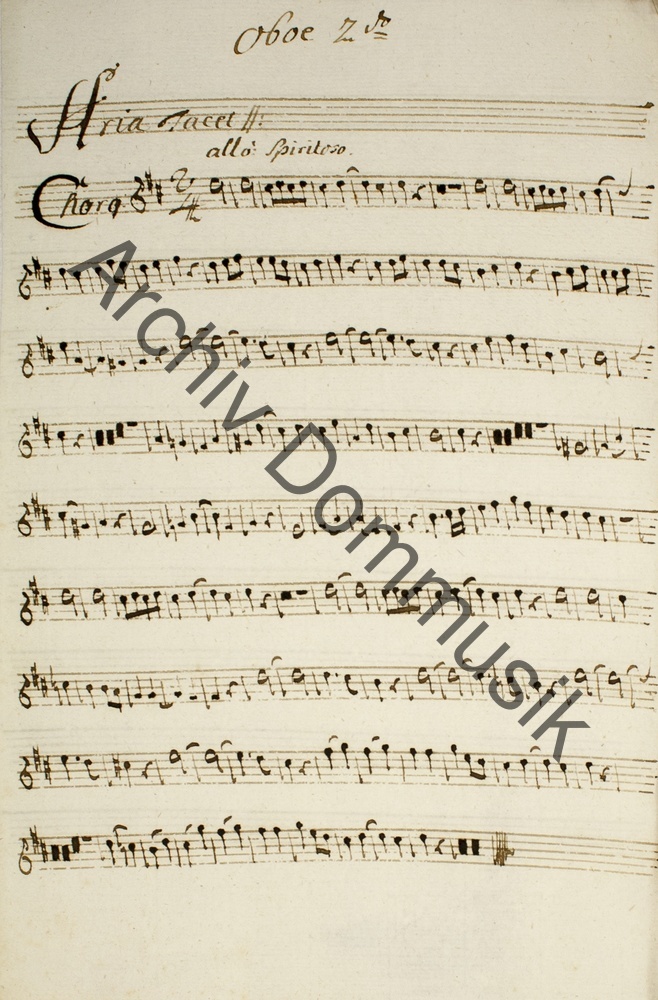 Oboe 2do
Aria Tacet
allo: Spiritoso.
Choro
2
4
Archiv Dommusik